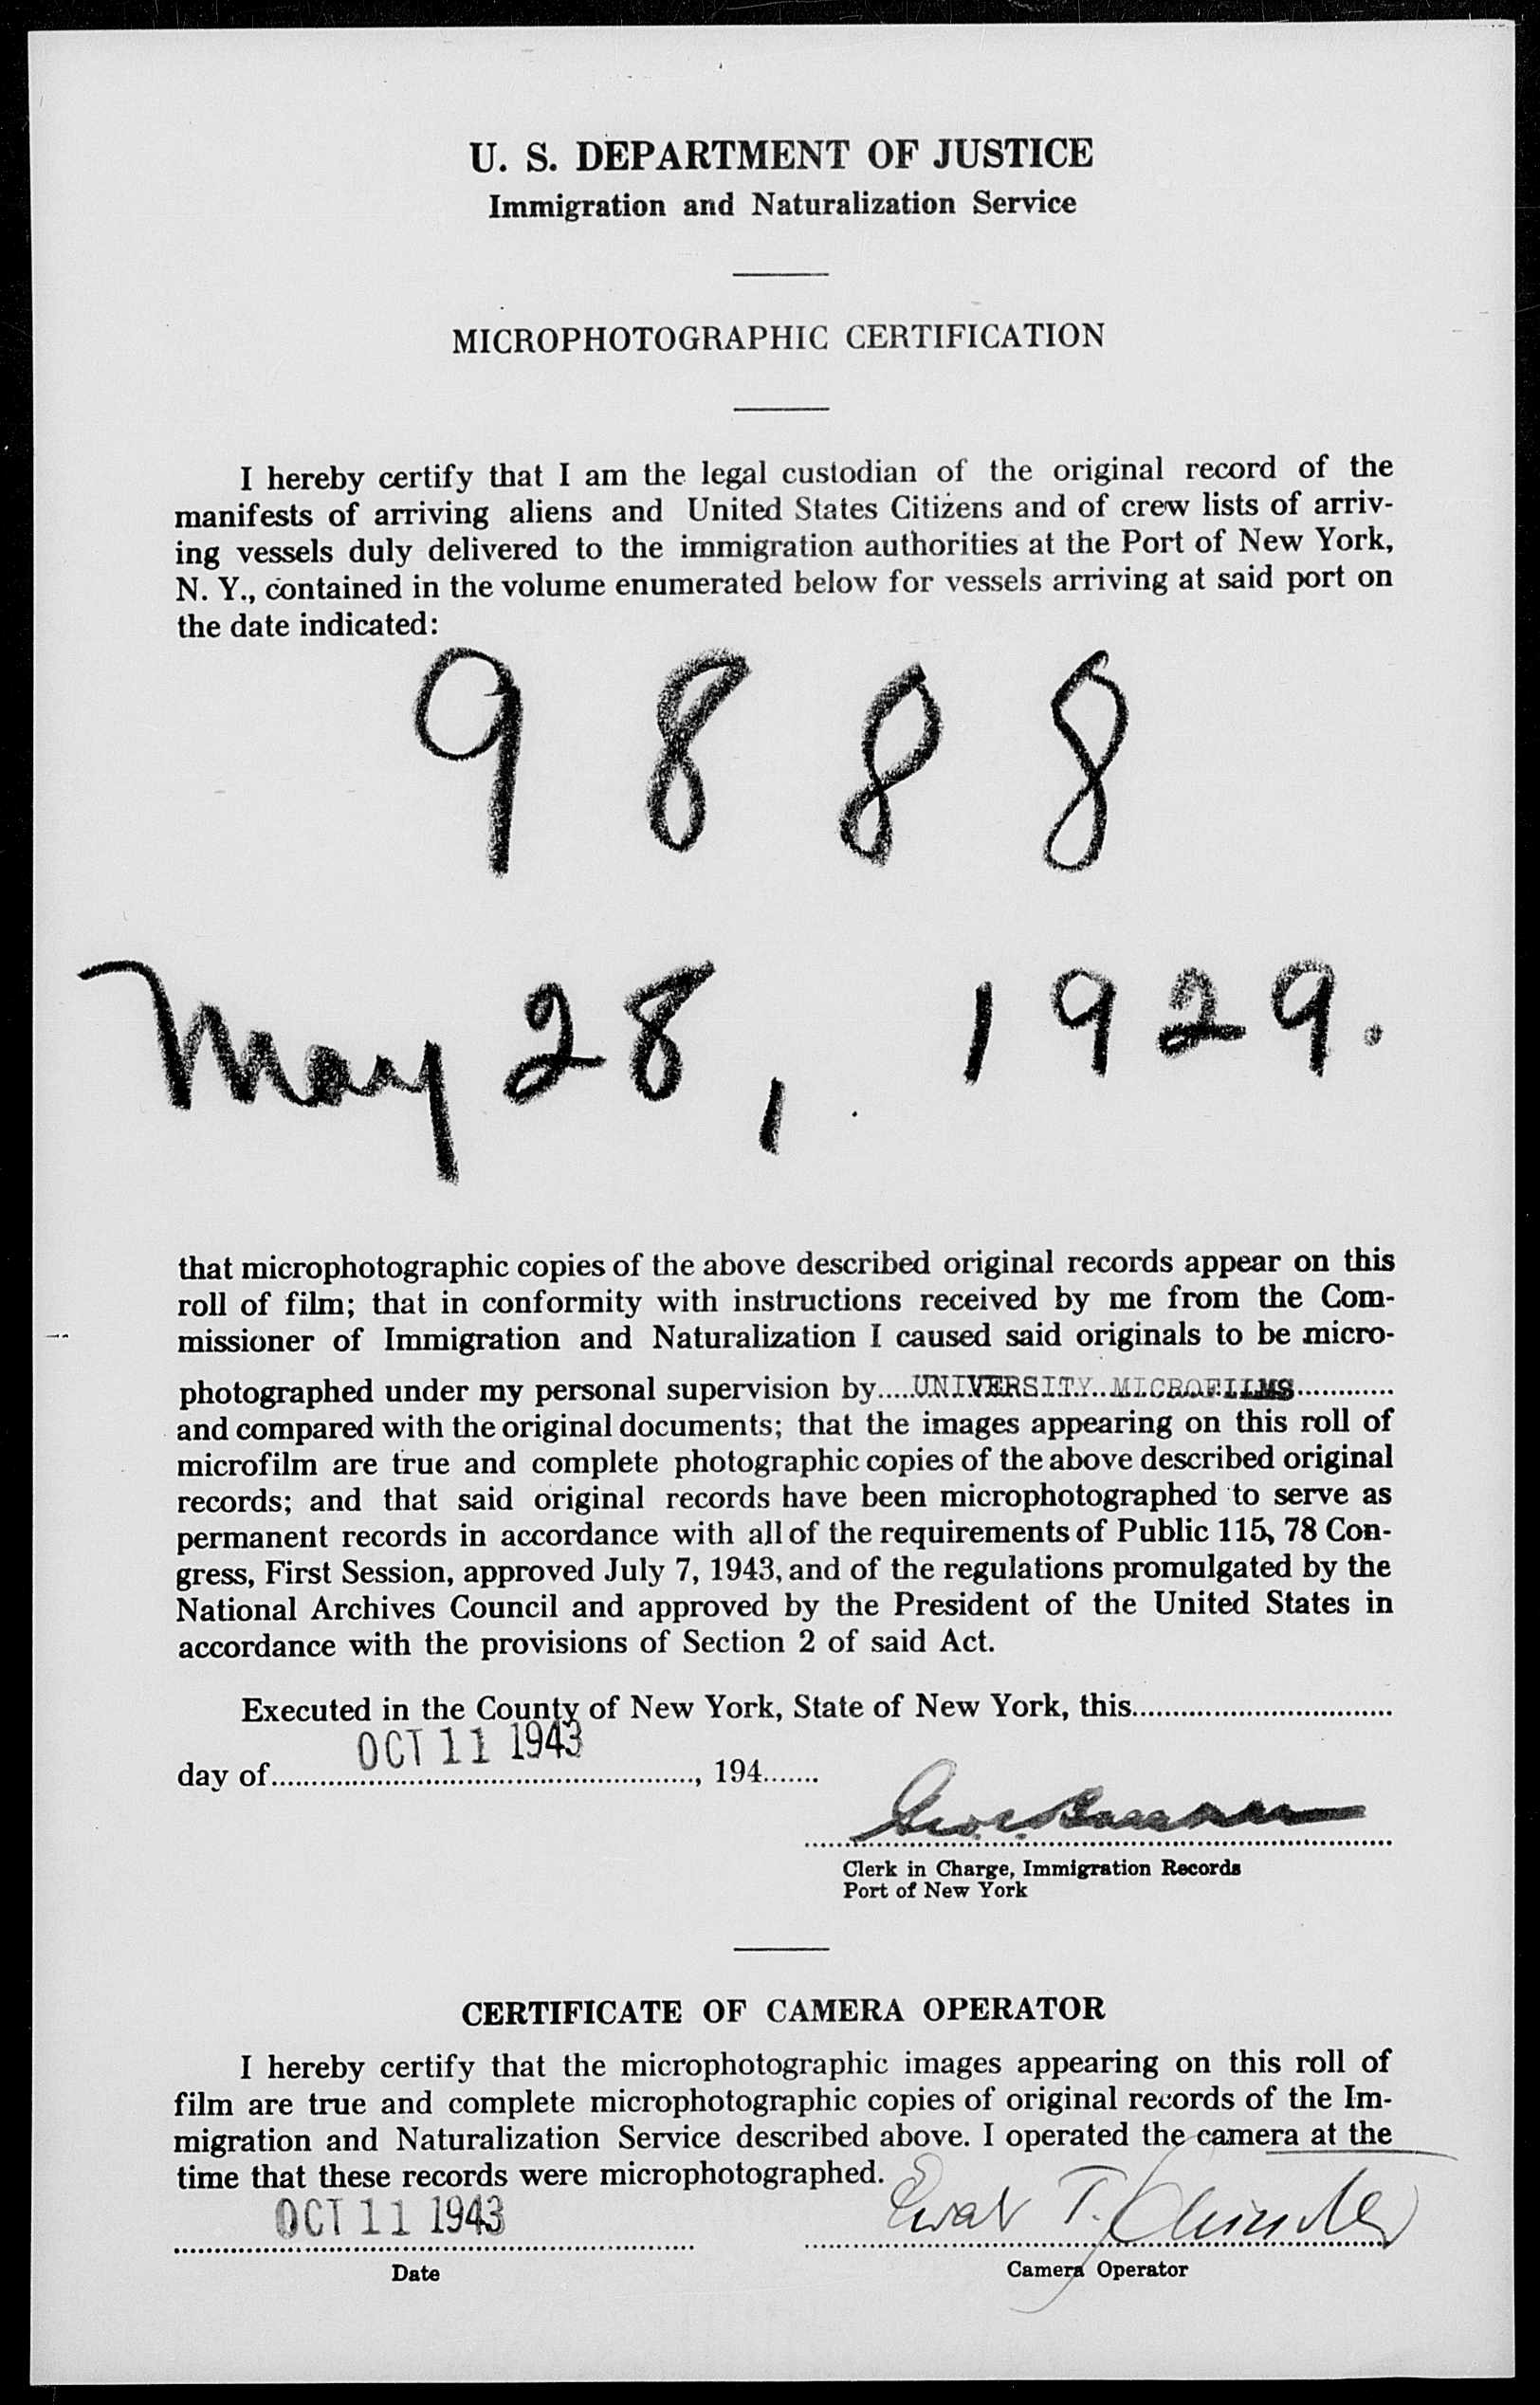 U. S. DEPARTMENT OF JUSTICE
Immigration and Naturalization Service
MICROPHOTOGRAPHIC CERTIFICATION
I hereby certify that I am the legal custodian of the original record of the
manifests of arriving aliens and United States Citizens and of crew lists of arriv-
ing vessels duly delivered to the immigration authorities at the Port of New York,
N. Y., contained in the volume enumerated below for vessels arriving at said port on
the date indicated:
9888
May 28, 1929.
that microphotographic copies of the above described original records appear on this
roll of film; that in conformity with instructions received by me from the Com-
missioner of Immigration and Naturalization I caused said originals to be micro-
photographed under my personal supervision by.....UNIVERSITY MICROFILMS............
and compared with the original documents; that the images appearing on this roll of
microfilm are true and complete photographic copies of the above described original
records; and that said original records have been microphotographed to serve as
permanent records in accordance with all of the requirements of Public 115, 78 Con-
gress, First Session, approved July 7, 1943, and of the regulations promulgated by the
National Archives Council and approved by the President of the United States in
accordance with the provisions of Section 2 of said Act.
Executed in the County of New York, State of New York, this................................
OCT 11 1943
day of...................................................., 194.......
Clerk in Charge, Immigration Records
Port of New York
CERTIFICATE OF CAMERA OPERATOR
I hereby certify that the microphotographic images appearing on this roll of
film are true and complete microphotographic copies of original records of the Im-
migration and Naturalization Service described above. I operated the camera at the
time that these records were microphotographed.
OCT 11 1943
T.
Date
Camera Operator